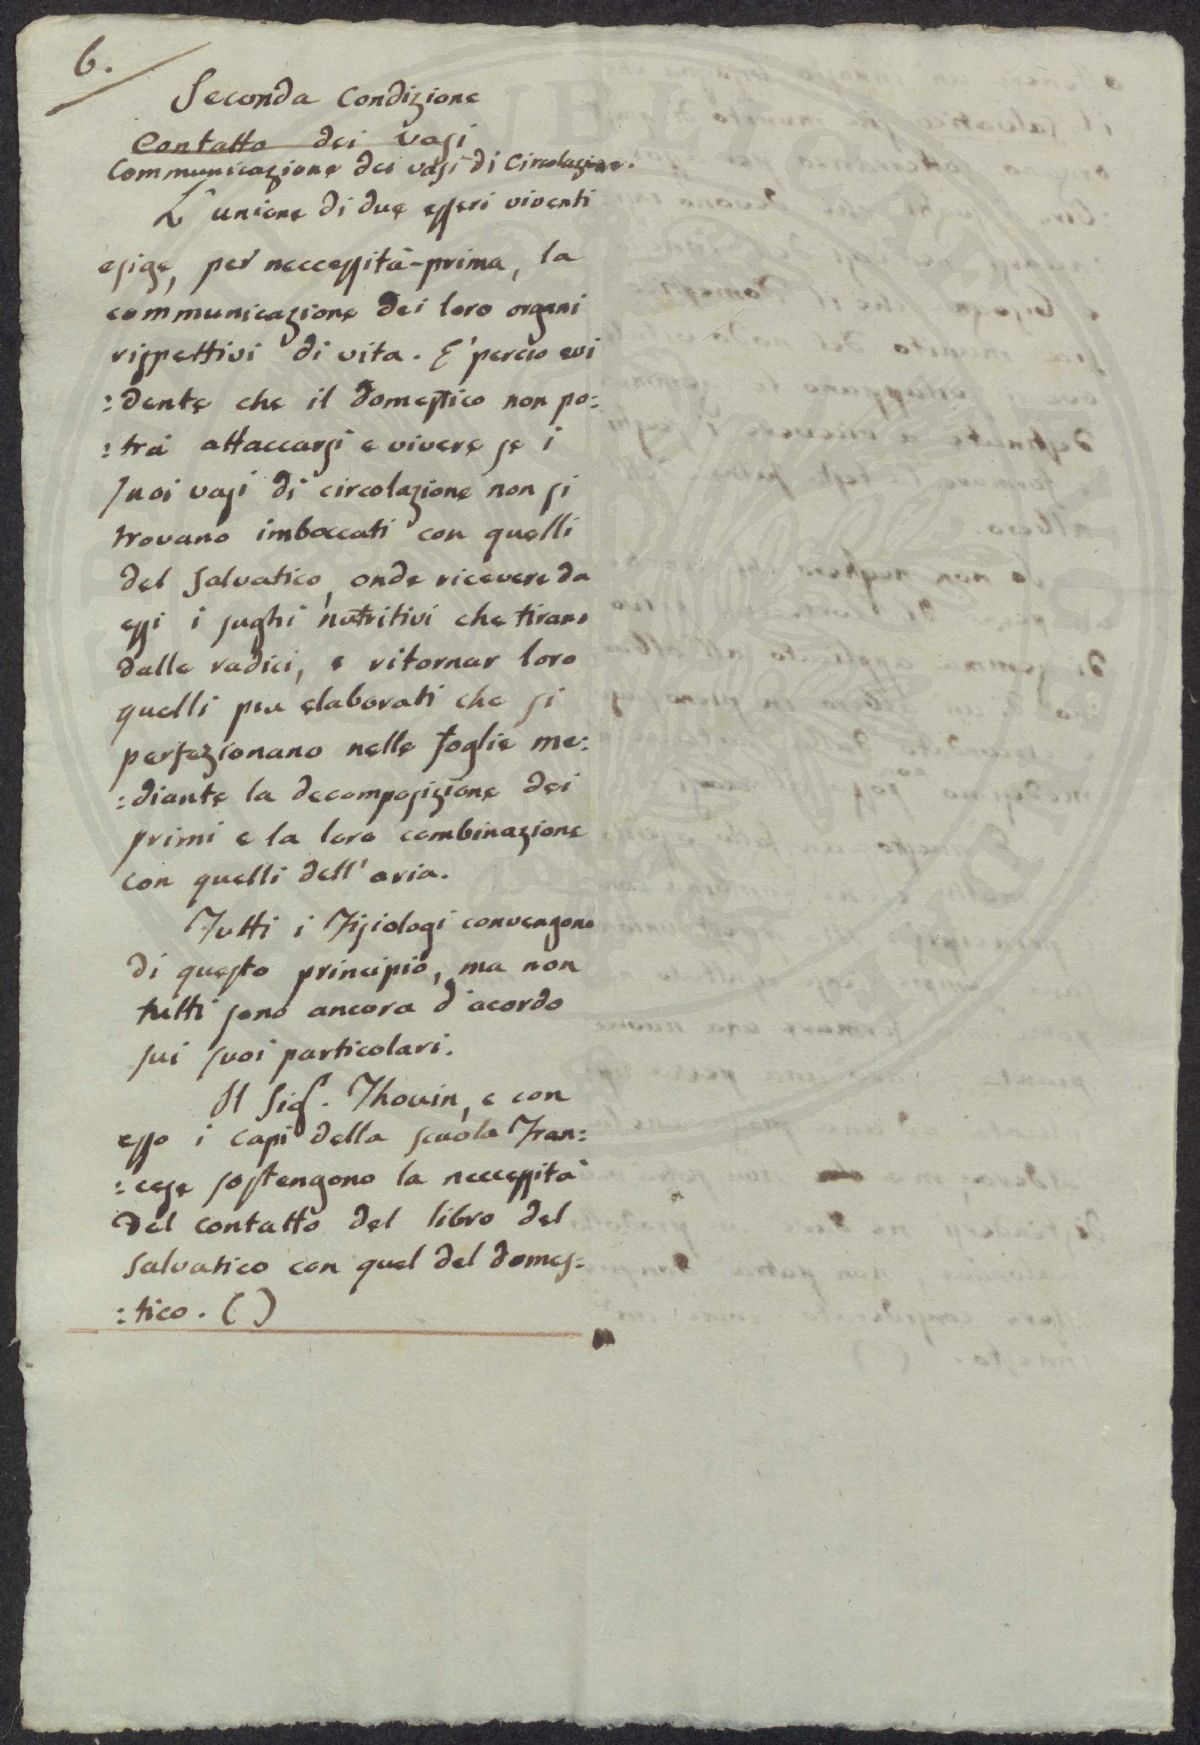 6.
Seconda Condizione
Contatto dei vasi
Communicazione dei vasi di Circolazione.
L'unione di due esseri viventi
esige, per neccessità-prima, la
communicazione dei loro organi
rispettivi di vita. E' percio evi
:dente che il domestico non po:
:trà attaccarsi e vivere se i
suoi vasi di circolazione non si
trovano imboccati con quelli
del salvatico, onde ricevere da
essi i sughi nutritivi che tirano
dalle radici, e ritornar loro
quelli piu elaborati che si
perfezionano nelle foglie me:
:diante la decomposizione dei
primi e la loro combinazione
con quelli dell'aria.
Tutti i Fisiologi convengono
di questo principio, ma non
tutti sono ancora d'acordo
sui suoi particolari.
Il Sig.r Thouin, e con
esso i Capi della scuola Fran:
:cese sostengono la neccessità
del contatto del libro del
salvatico con quel del domes:
:tico. ( )